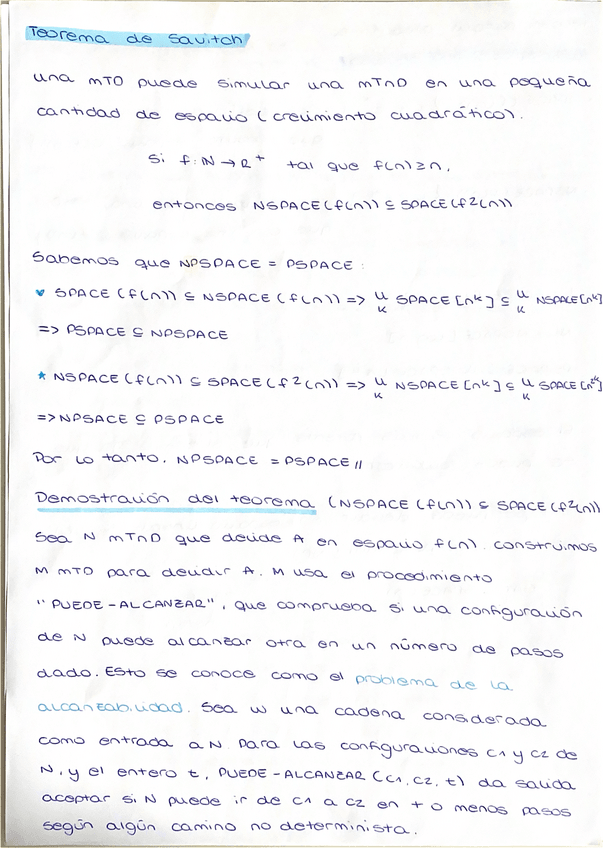 Teorema de Savitch
una MTD puede simular una MTND en una pequeña
cantidad de espacio (crecimiento cuadrático).
Si f: N → R⁺ tal que f(n) ≥ n,
entonces: NSPACE(f(n)) ⊆ SPACE(f²(n))
Sabemos que NPSPACE = PSPACE:
* SPACE (f(n)) ⊆ NSPACE (f(n)) => ∪ₖ SPACE [nᵏ] ⊆ ∪ₖ NSPACE[nᵏ]
=> PSPACE ⊆ NPSPACE
* NSPACE (f(n)) ⊆ SPACE (f²(n)) => ∪ₖ NSPACE [nᵏ] ⊆ ∪ₖ SPACE [n²ᵏ]
=> NPSACE ⊆ PSPACE
Por lo tanto, NPSPACE = PSPACE //
Demostración del teorema (NSPACE (f(n)) ⊆ SPACE (f²(n))
Sea N MTND que decide A en espacio f(n). construimos
M MTD para decidir A. M usa el procedimiento
"PUEDE-ALCANZAR", que comprueba si una configuración
de N puede alcanzar otra en un número de pasos
dado. Esto se conoce como el problema de la
alcanzabilidad. Sea w una cadena considerada
como entrada a N. Para las configuraciones c1 y c2 de
N, y el entero t, PUEDE-ALCANZAR (c1, c2, t) da salida
aceptar si N puede ir de c1 a c2 en t o menos pasos
según algún camino no determinista.